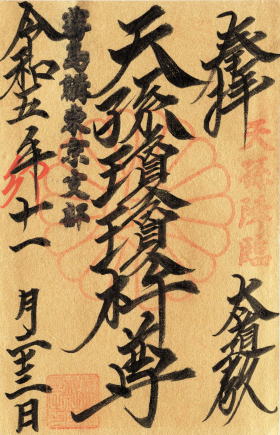 奉拝
天孫降臨
天孫瓊瓊杵尊
東京支部
令和五年十一月二十三日
卯